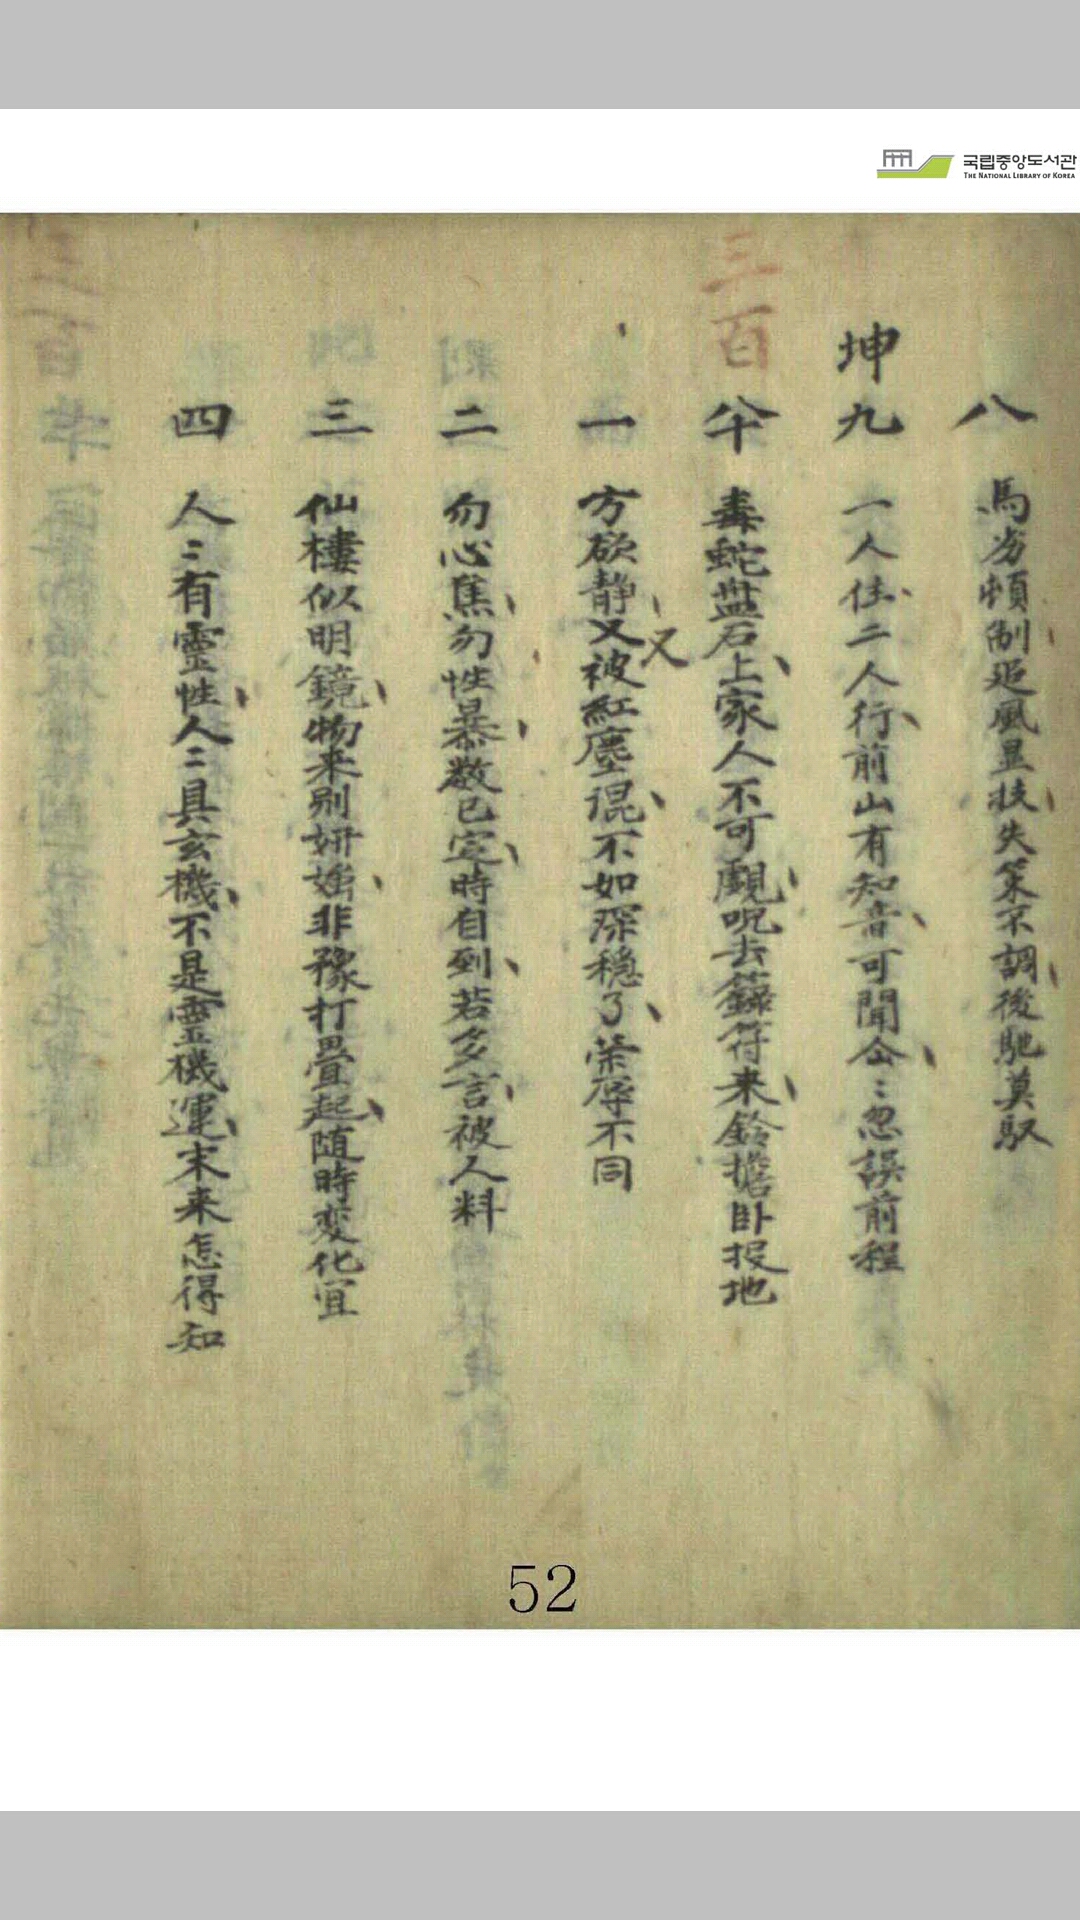 국립중앙도서관
THE NATIONAL LIBRARY OF KOREA
八 馬劣頓制追風足扶失策不調後馳莫馭
坤九 一人住二人行前山有知音可聞公〻忽誤前程
三百八十 毒蛇盤石上家人不可覷呪去籙符來鈴擔卧投地
一 方欲静又被紅塵混不如深穩了荣辱不同
又
二 勿心焦勿性暴数已定時自到若多言被人料
三 仙棲似明鏡物来别妍媸非豫打疊起随時变化宜
四 人〻有靈性人〻具玄機不是靈機運未来怎得知
52